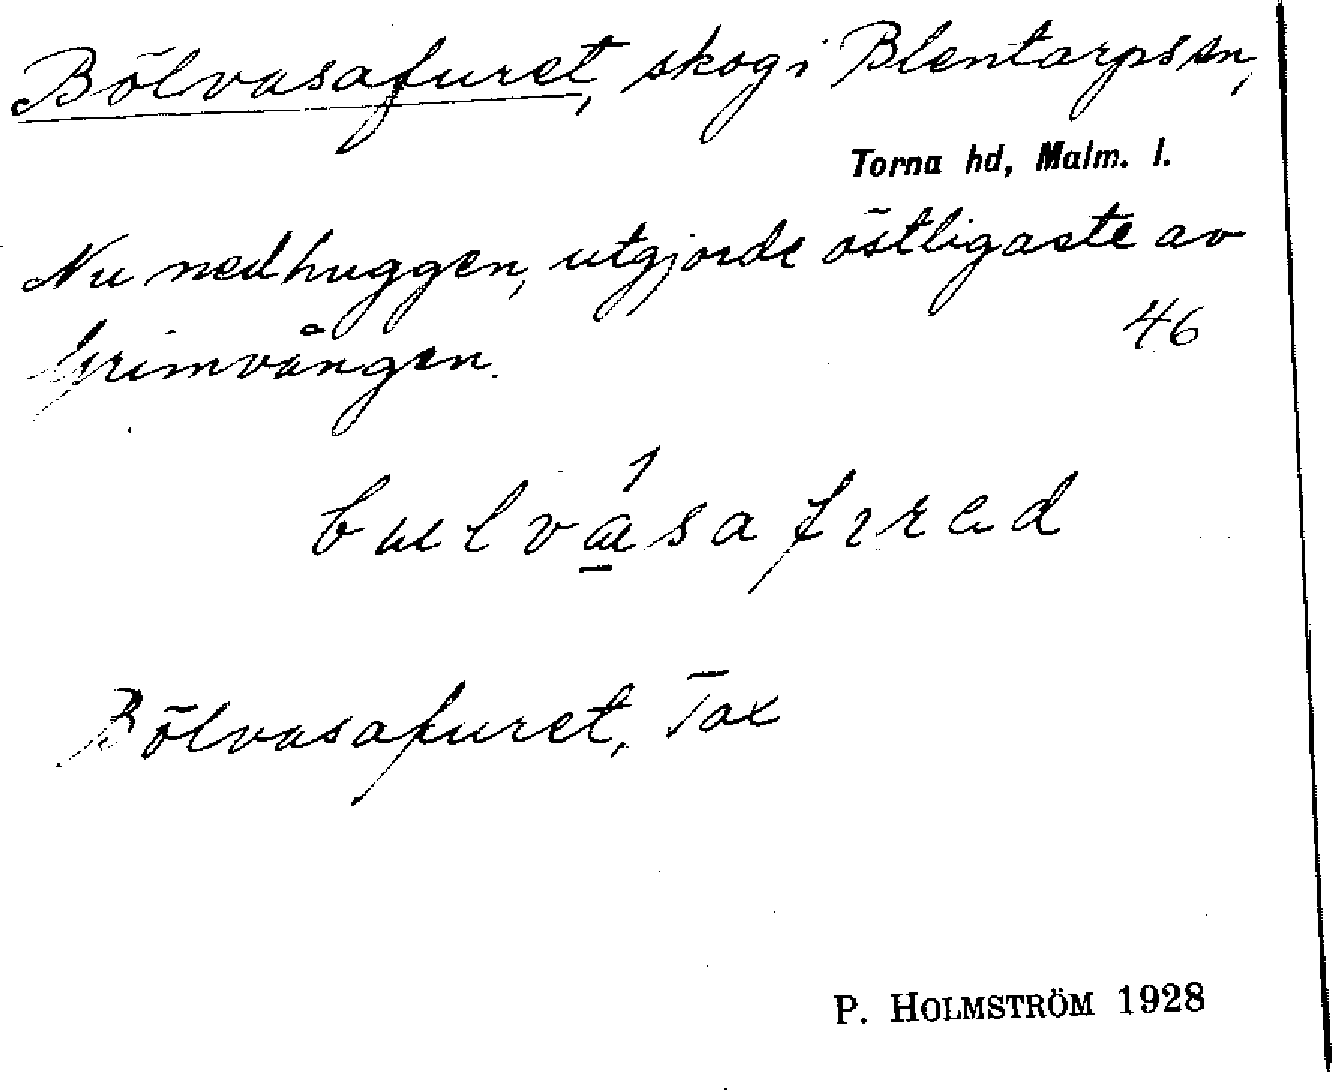 Bölvasafuret, skog i Blentarps sn,
Torna hd, Malm. l.
Nu nedhuggen, utgjorde östligaste av
Grimvången. 46
Bölvasafuret, Tax
P. HOLMSTRÖM 1928